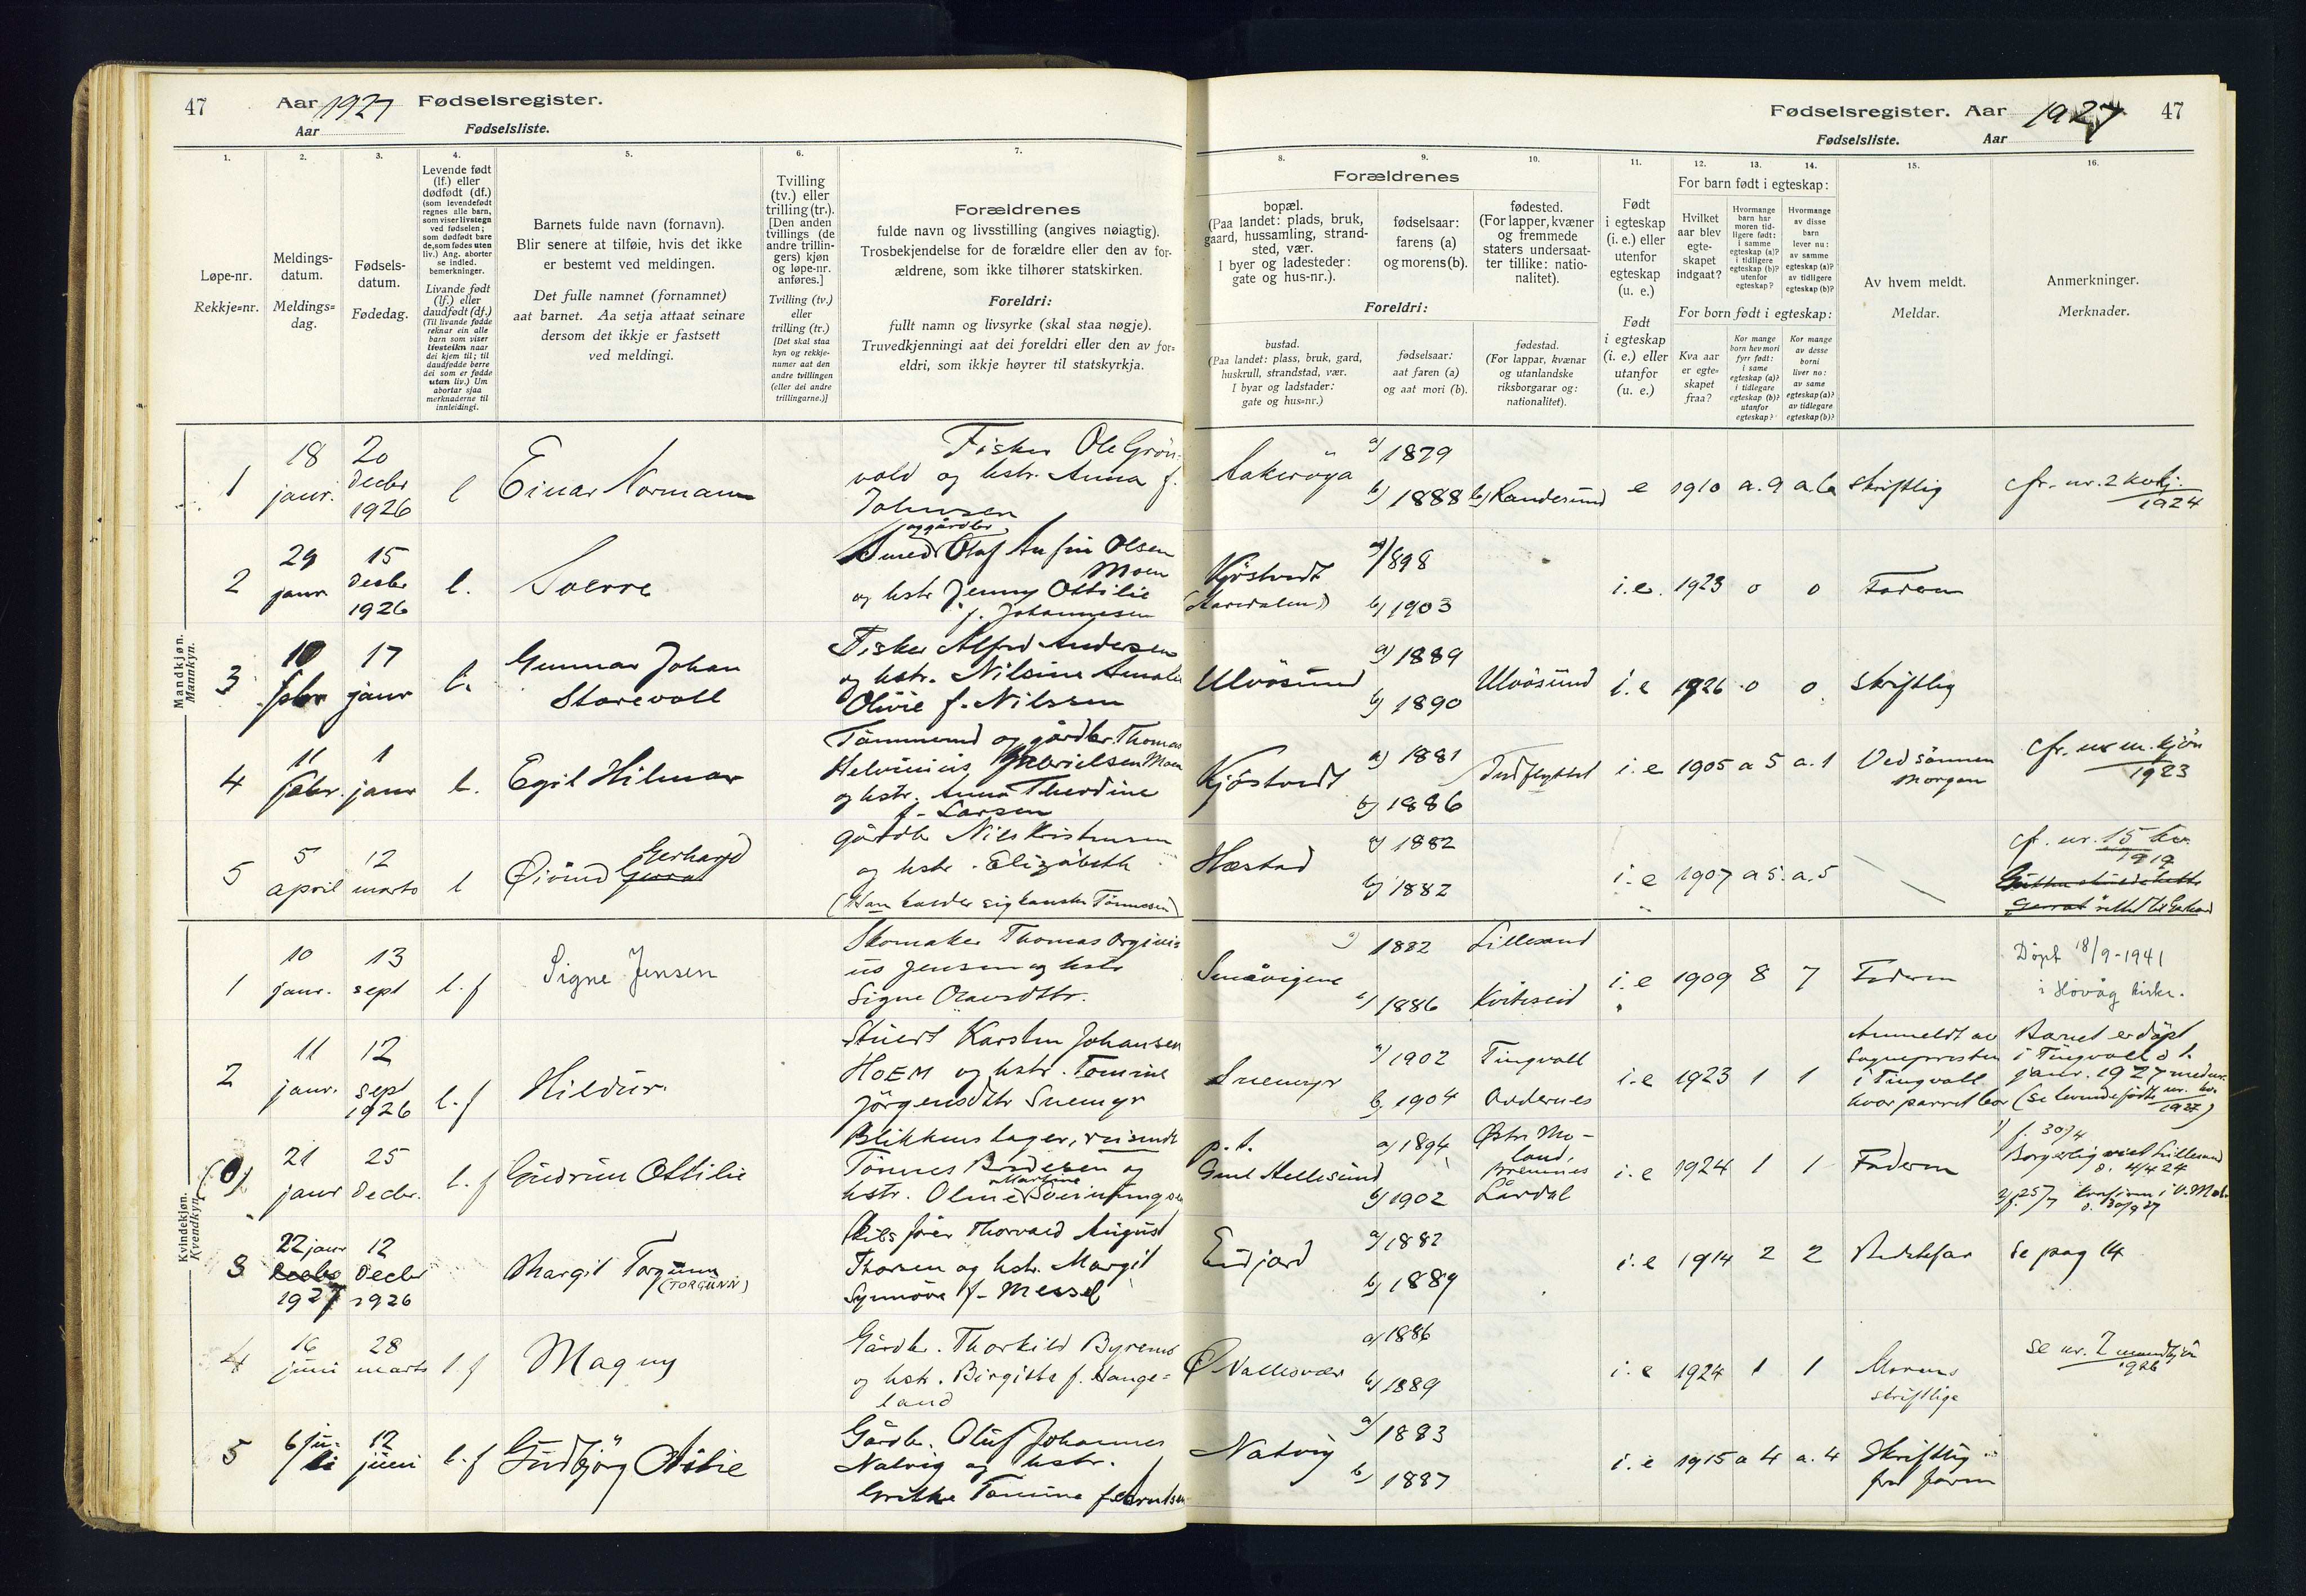 47 Aar 1927 Fødselsregister.
Aar Fødselsliste.
Fødselsregister. Aar 1927 47
Fødselsliste. Aar
1. 2. 3. 4. 5. 6. 7.
Løpe-nr.
Rekkje=nr.
Meldings-
datum.
Meldings=
dag.
Fødsels-
datum.
Fødedag.
Levende født
(lf.) eller
dødfødt (df.)
(som levendefødt
regnes alle barn,
som viser livstegn
ved fødselen;
som dødfødt bare
de, som fødes uten
liv.) Ang. aborter
se indled.
bemerkninger.
Livande født
(lf.) eller
daudfødt (df.)
(Til livande fødde
reknar ein alle
barn som viser
livsteikn naar
dei kjem til; til
daudfødde berre
dei som er fødde
utan liv.) Um
abortar sjaa
merknaderne til
innleidingi.
Barnets fulde navn (fornavn).
Blir senere at tilføie, hvis det ikke
er bestemt ved meldingen.
Det fulle namnet (fornamnet)
aat barnet. Aa setja attaat seinare
dersom det ikkje er fastsett
ved meldingi.
Tvilling
(tv.) eller
trilling (tr.).
[Den anden
tvillings (de
andre trillin-
gers) kjøn
og løpe-nr.
anføres.]
Tvilling (tv.)
eller
trilling (tr.)
[Det skal staa
kyn og rekkje-
numer aat den
andre tvillingen
(eller dei andre
trillingarne.)]
Forældrenes
fulde navn og livsstilling (angives nøiagtig).
Trosbekjendelse for de forældre eller den av for-
ældrene, som ikke tilhører statskirken.
Foreldri:
fullt namn og livsyrke (skal staa nøgje).
Truvedkjenningi aat dei foreldri eller den av for=
eldri, som ikkje høyrer til statskyrkja.
8. 9. 10. 11. 12. 13. 14. 15. 16.
Forældrenes
bopæl.
(Paa landet: plads, bruk,
gaard, hussamling, strand-
sted, vær.
I byer og ladesteder:
gate og hus-nr.).
fødselsaar:
farens (a)
og morens (b).
fødested.
(For lapper, kvæner
og fremmede
staters undersaat-
ter tillike: natio-
nalitet).
Foreldri:
bustad.
(Paa landet: plass, bruk, gard,
huskrull, strandstad, vær.
I byar og ladstader:
gate og hus=nr.)
fødselsaar:
aat faren (a)
og aat mori (b).
fødestad.
(For lappar, kvænar
og utanlandske
riksborgarar og:
nationalitet).
Født
i egteskap
(i. e.) eller
utenfor
egteskap
(u. e.)
Født
i egteskap
(i. e.) eller
utanfor
(u. e.)
For barn født i egteskap:
Hvilket
aar blev
egte-
skapet
indgaat?
Hvormange
barn har
moren tid-
ligere født:
i samme
egteskap (a)?
i tidligere
egteskap (b)?
utenfor
egteskap?
Hvormange
av disse
barn
lever nu:
av samme
egteskap (a)?
av tidligere
egteskap (b)?
For born født i egteskap:
Kva aar
er egte=
skapet
fraa?
Kor mange
born hev mori
fyrr født:
i same
egteskap (a)?
i tidlegare
egteskap (b)?
utanfor
egteskap?
Kor mange
av desse
borni
liver no:
av same
egteskap (a)?
av tidlegare
egteskap (b)?
Av hvem meldt.
Meldar.
Anmerkninger.
Merknader.
Mandkjøn.
Mannkyn.
1 18 janr. 20 decbr 1926 l Einar Normann
Fisker Ole Grön-
vold og hstr. Anna f.
Johnsen
Aakeröya a) 1879 b) 1888 b) Randesund e 1910 a. 9 a. 6 skriftlig cfr. nr. 2 kvkj. 1924
2 29 janr 15 decbr 1926 l. Sverre
og gårdbr.
Smed Olaf Anfin Olsen
Moen
og hstr Jenny Ottilie
f. Johannesen
Kjöstvedt
a) 1898 b) 1903 i.e. 1923 0 0 Faderen
3 10 febr 17 janr l. Gunnar Johan
Storevoll
Fisker Alfred Andersen
og hstr. Nilsine Amalie
Olivie f. Nilssen
Ulvösund a) 1889 b) 1890 Ulvösund i.e 1926 0 0 skriftlig
4 11 febr. 1 janr l. Egil Hilmar
Tömmermd og gårdbr. Thomas
Helvinius Gabrielsen Moen
og hstr. Anna Theodine
f. Larsen
Kjöstvedt a) 1881 b) 1886 Indflyttet i.e 1905 a 5 a. 1 Ved sönnen
Morgan
1923
5 5 april 12 marts l Øivind Gerhard
gårdbr Nils Kristensen
og hstr. Elizabeth
(Han kalder sig kanske Tönnesen)
Hæstad a) 1882 b) 1882 i.e 1907 a 5. a. 5
cf. nr. 15 kv.
1919
Kvindekjøn.
Kvendkyn.
1 10 janr. 13 sept l. f Signe Jensen
Skomaker Thomas Orginis
ius Jensen og hstr
Signe Olavsdttr.
Småvigene a) 1882 b) 1886 Lillesand Kviteseid i.e 1909 8 7 Faderen
Döpt 18/9-1941
i Hövåg kirke.
2 11 janr. 12 sept 1926 l. f Hildur.
Stuert Karsten Johansen
HOEM og hstr. Tomine
Jörgensdttr Snemyr
Snemyr a) 1902 b) 1904 Tingvoll i.e 1923 1 1
Anmeldt av
Sognepresten
i Tingvoll
hvor parret bor
Barnet er döpt
i Tingvoll d 1.
janr. 1927
1927)
(0) 21 janr 25 decbr. l. f Gudrun Ottilie
Blikkenslager, reisende
Tönnes
hstr. Oline Martine
p. t.
Gml Hellesund a) 1894 b) 1902
Lårdal
i.e 1924 1 1 Faderen
Borgerlig viet Lillesand
3 22 janr 1927 12 decbr 1926 Margit Torgunn
(TORGUNN)
Skibsförer Thorvald August
Thorsen og hstr. Margit
Synnöve f. Messel
Eidjord a) 1882 b) 1889 i.e 1914 2 2 se pag 14
4 16 juni 28 marts l f Magny
Gårdbr. Thorkild Byremo
og hstr. Birgitte f. Hauge=
land
Ø Vallesvær a) 1886 b) 1889 i.e 1924 1 1 Morens
skriftlige
se nr. 2 mandkjön
1926
5 6 ju-
li 12 juni l. f Gudbjörg Otilie
Gårdbr. Oluf Johannes
Natvig og hstr.
Grethe Tomine f.
Natvig a) 1883 b) 1887 i.e 1915 a 4 a. 4 Skriftlig
fra faren